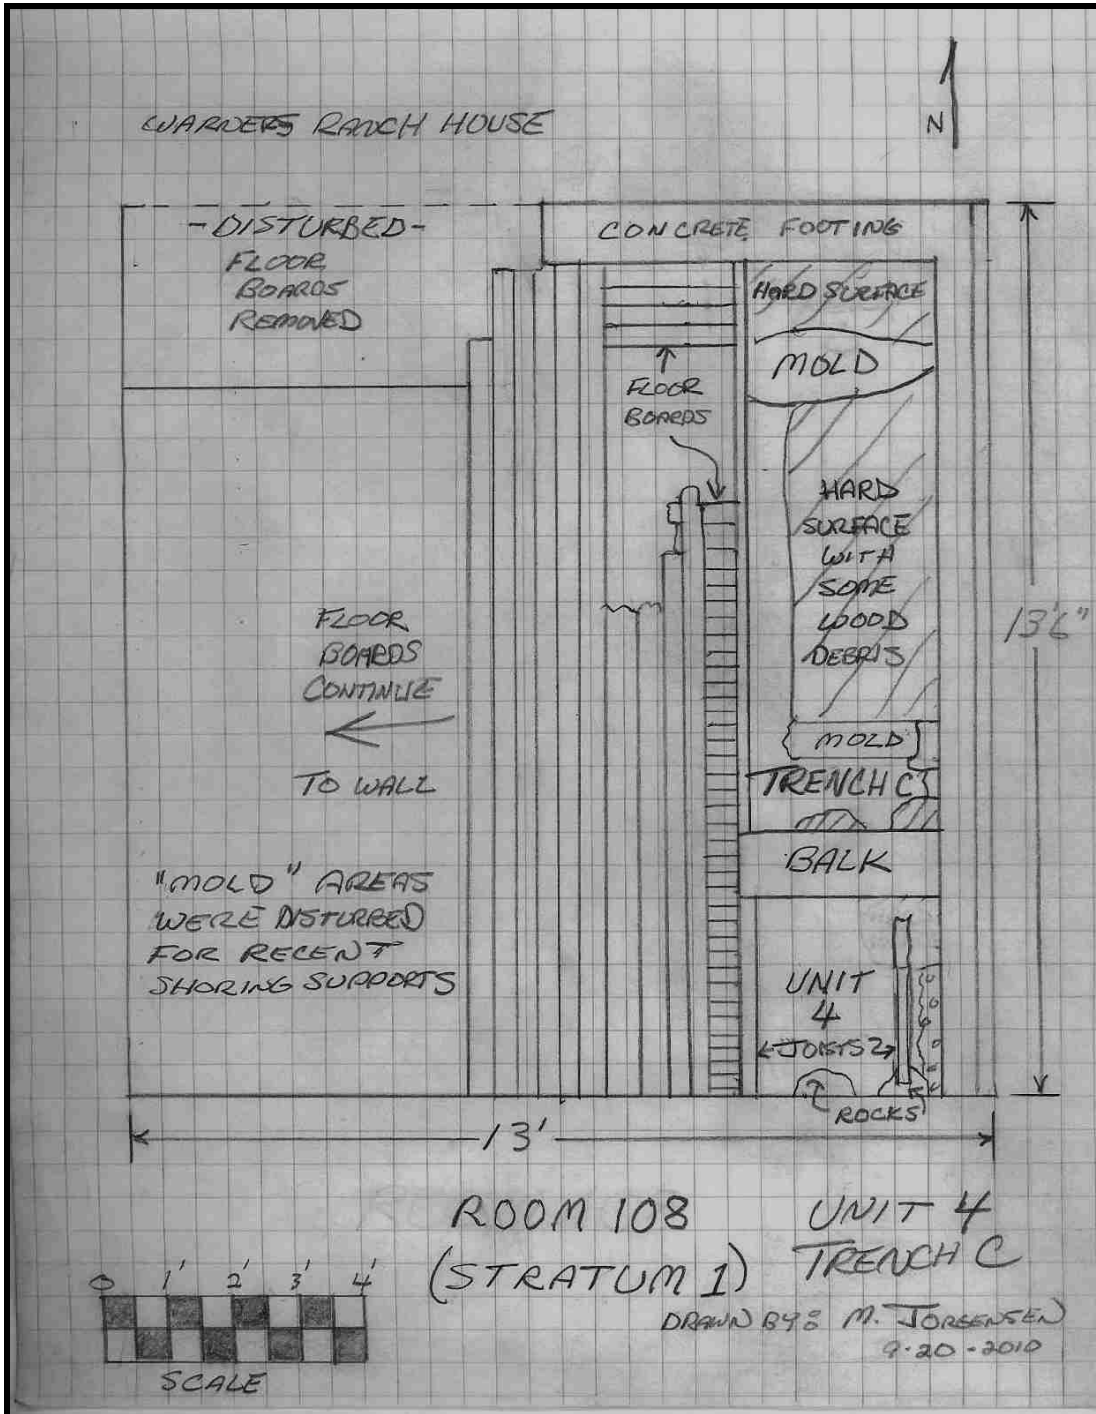 WARNERS RANCH HOUSE
N
-DISTURBED-
FLOOR
BOARDS
REMOVED
CONCRETE FOOTING
HARD SURFACE
MOLD
FLOOR
BOARDS
HARD
SURFACE
WITH
SOME
WOOD
DEBRIS
13'6"
FLOOR
BOARDS
CONTINUE
TO WALL
MOLD
TRENCH C
BALK
"MOLD" AREAS
WERE DISTURBED
FOR RECENT
SHORING SUPPORTS
UNIT
4
JOISTS
ROCKS
13'
ROOM 108
(STRATUM 1)
UNIT 4
TRENCH C
0 1' 2' 3' 4'
SCALE
DRAWN BY: M. JORGENSEN
9-20-2010